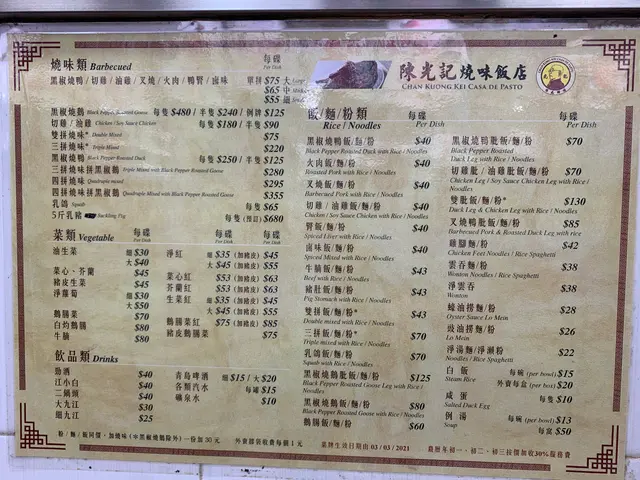 燒味類 Barbecued 每碟 Per Dish
黑椒燒鴨/切雞/油雞/叉燒/火肉/鴨腎/鹵味 單拼 $75 大
$65 中
$55 細
黑椒燒鵝 Black Pepper Roasted Goose 每隻 $480 / 半隻 $240 / 例牌 $125
切雞/油雞 Chicken / Soy Sauce Chicken 每隻 $180 / 半隻 $90
雙拼燒味* Double Mixed $75
三拼燒味* Triple Mixed $220
黑椒燒鴨 Black Pepper Roasted Duck 每隻 $250 / 半隻 $125
三拼燒味拼黑椒鵝 Triple Mixed with Black Pepper Roasted Goose $280
四拼燒味 Quadruple mixed $295
四拼燒味拼黑椒鵝 Quadruple Mixed with Black Pepper Roasted Goose $355
乳鴿 Squab 每隻 $65
5斤乳豬 Suckling Pig 每隻 (預訂) $680
菜類 Vegetable 每碟 Per Dish 每碟 Per Dish
油生菜 細 $30
大 $40
菜心、芥蘭 $45
豬皮生菜 $45
淨蘿蔔 細 $30
大 $50
鵝腸菜 $70
白灼鵝腸 $80
牛腩 $80
淨紅 細 $35 (加豬皮) $45
大 $45 (加豬皮) $55
菜心紅 $53 (加豬皮) $63
芥蘭紅 $53 (加豬皮) $63
生菜紅 細 $35 (加豬皮) $45
大 $45 (加豬皮) $55
鵝腸菜紅 $75 (加豬皮) $85
豬皮鵝腸菜 $75
飲品類 Drinks
勁酒 $40
江小白 $40
二鍋頭 $40
大九江 $30
細九江 $25
青島啤酒 細 $15 / 大 $20
各類汽水 每罐 $15
礦泉水 $10
粉/麵/飯同價,加燒味(*黑椒燒鵝除外)一份加30元 外賣膠袋收費每個1元
陳光記燒味飯店
CHAN KUONG KEI CASA DE PASTO
飯/麵/粉類 Rice / Noodles 每碟 Per Dish
黑椒燒鴨飯/麵/粉 $40
Black Pepper Roasted Duck with Rice / Noodles
火肉飯/麵/粉 $40
Roasted Pork with Rice / Noodles
叉燒飯/麵/粉 $40
Barbecued Pork with Rice / Noodles
切雞/油雞飯/麵/粉 $40
Chicken / Soy Sauce Chicken with Rice / Noodles
腎飯/麵/粉 $40
Spiced Liver with Rice / Noodles
鹵味飯/麵/粉 $40
Spiced Mixed with Rice / Noodles
牛腩飯/麵/粉 $43
Beef with Rice / Noodles
豬肚飯/麵/粉 $43
Pig Stomach with Rice / Noodles
雙拼飯/麵/粉* $43
Double mixed with Rice / Noodles
三拼飯/麵/粉* $70
Triple mixed with Rice / Noodles
乳鴿飯/麵/粉 $70
Squab with Rice / Noodles
黑椒燒鵝肶飯/麵/粉 $125
Black Pepper Roasted Goose Leg with Rice / Noodles
黑椒燒鵝飯/麵/粉 $80
Black Pepper Roasted Goose with Rice / Noodles
鵝腸飯/麵/粉 $60
每碟 Per Dish
黑椒燒鴨肶飯/麵/粉 $70
Black Pepper Roasted
Duck Leg with Rice / Noodles
切雞肶/油雞肶飯/麵/粉 $70
Chicken Leg / Soy Sauce Chicken Leg with Rice / Noodles
雙肶飯/麵/粉* $130
Duck Leg & Chicken Leg with Rice / Noodles
叉燒鴨肶飯/麵/粉 $85
Barbecued Pork & Roasted Duck Leg with Rice
雞腳麵/粉 $42
Chicken Feet Noodles / Rice Spaghetti
雲吞麵/粉 $38
Wonton Noodles / Rice Spaghetti
淨雲吞 $38
Wonton
蠔油撈麵/粉 $28
Oyster Sauce Lo Mein
豉油撈麵/粉 $26
Lo Mein
淨湯麵/淨瀨粉 $22
Noodles / Rice Spaghetti
白飯 每碗 (per bowl) $15
Steam Rice 外賣每盒 (per box) $20
咸蛋 每隻 $10
Salted Duck Egg
例湯 每碗 (per bowl) $13
Soup 每窩 $50
菜牌生效日期由 03 / 03 / 2021 農曆年初一、初二、初三按價加收30%服務費